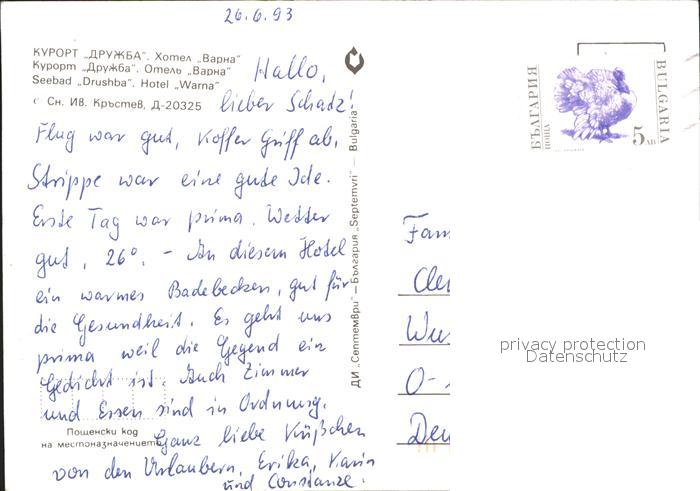 26.6.93
КУРОРТ „ДРУЖБА". Хотел „Варна"
Курорт „Дружба". Отель „Варна"
Seebad „Drushba". Hotel „Warna"
с Сн. Ив. Кръстев, Д-20325
Hallo,
lieber Schatz!
Flug war gut, Koffer Griff ab,
Strippe war eine gute Ide.
Erste Tag war prima. Wetter
gut, 26°. – In diesem Hotel
ein warmes Badebecken, gut für
die Gesundheit. Es geht uns
prima weil die Gegend ein
Gedicht ist. Auch Zimmer
und Essen sind in Ordnung.
Ganz liebe Küßchen
von den Urlaubern, Erika, Karin
und Constanze.
Пощенски код
на местоназначението
ДИ „Септември" – България „Septemvri" – Bulgaria
БЪЛГАРИЯ
ПОЩА
5 лв
BULGARIA
Fam
Wu
O-
Deu
privacy protection
Datenschutz